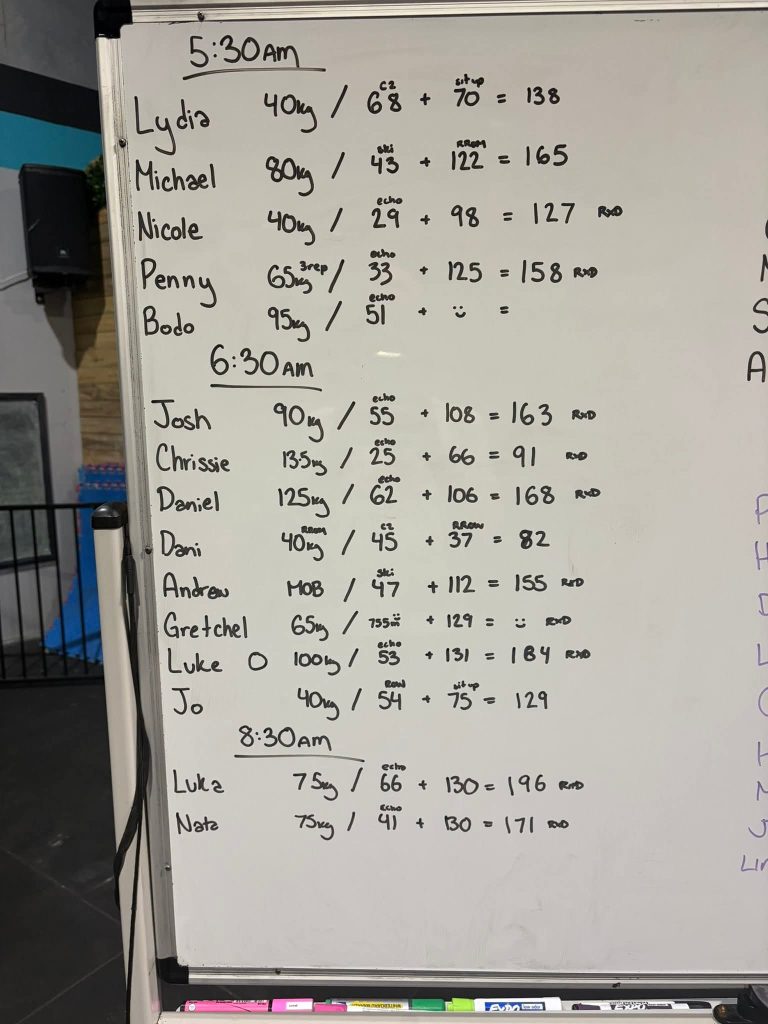 5:30AM
Lydia 40kg / 68 c2 + 70 situp = 138
Michael 80kg / 43 ski + 122 RROM = 165
Nicole 40kg / 29 echo + 98 = 127 RXD
Penny 65kg 3rep / 33 echo + 125 = 158 RXD
Bodo 95kg / 51 echo + =
6:30AM
Josh 90kg / 55 echo + 108 = 163 RXD
Chrissie 135kg / 25 echo + 66 = 91 RXD
Daniel 125kg / 62 echo + 106 = 168 RXD
Dani 40kg RROM / 45 c2 + 37 RROW = 82
Andrew MOB / 47 ski + 112 = 155 RXD
Gretchel 65kg / 755m + 129 = RXD
Luke O 100kg / 53 echo + 131 = 184 RXD
Jo 40kg / 54 ROW + 75 situp = 129
8:30AM
Luka 75kg / 66 echo + 130 = 196 RXD
Nate 75kg / 41 echo + 130 = 171 RXD
EXPO